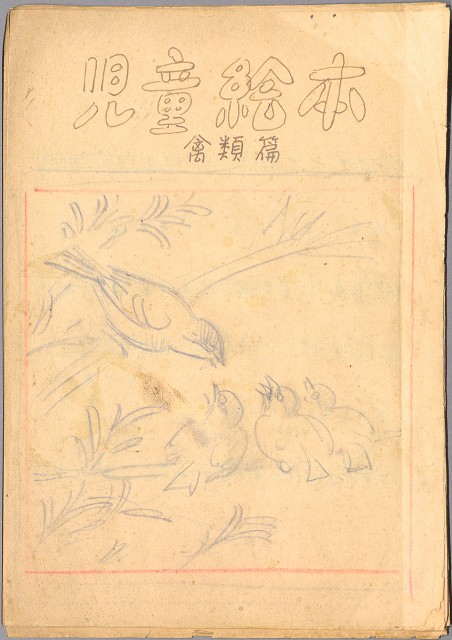 児童絵本
禽類篇